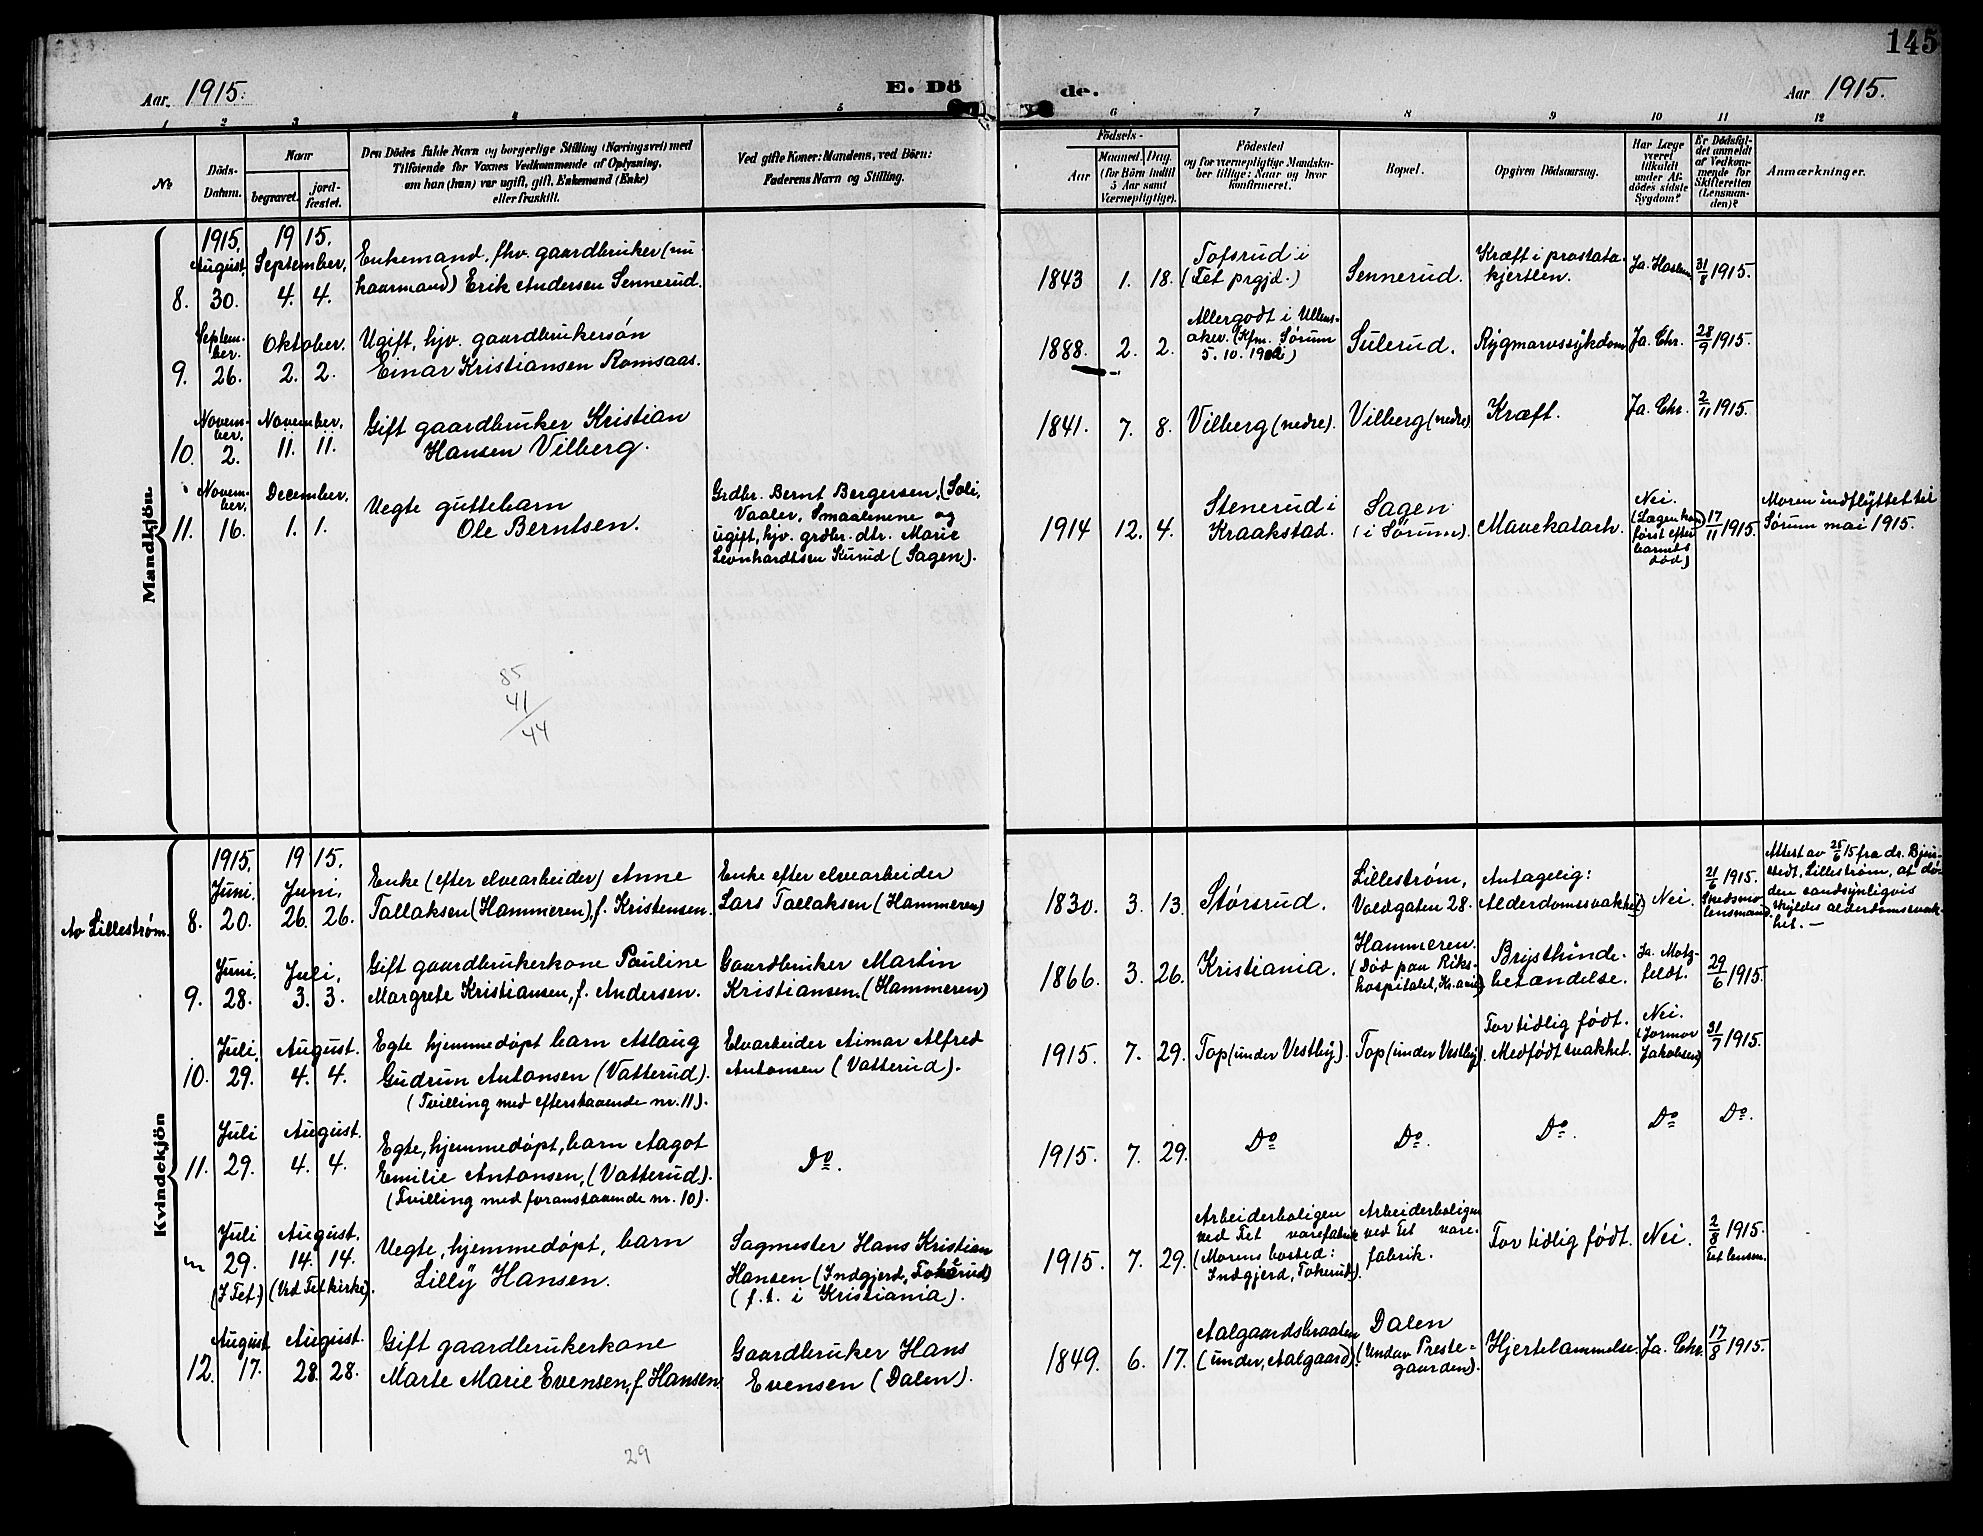 145
Aar. 1915.
E. Dö
de.
Aar 1915.
1 2 3 4 5 6 7 8 9 10 11 12
No
Döds-
Datum.
Naar
begravet.
jord-
fæstet.
Den Dödes fulde Navn og borgerlige Stilling (Næringsvei) med
Tilföiende for Voxnes Vedkommende af Oplysning,
om han (hun) var ugift, gift, Enkemand (Enke)
eller fraskilt.
Ved gifte Koner: Mandens, ved Börn:
Faderens Navn og Stilling.
Födsels-
Aar
Maaned. Dag.
(for Börn indtil
5 Aar samt
Værnepligtige).
Födested
og for værnepligtige Mandska-
ber tillige: Naar og hvor
konfirmeret.
Bopæl.
Opgiven Dödsaarsag.
Har Læge
været
tilkaldt
under Af-
dödes sidste
Sygdom?
Er Dödsfal-
det anmeldt
af Vedkom-
mende for
Skifteretten
(Lensman-
den)?
Anmærkninger.
Mandkjön.
1915. 1915.
August September.
8. 30. 4. 4.
Enkemand, fhv. gaardbruker (nu
kaarmand) Erik Andersen Sennerud.
1843 1. 18.
Tofsrud i
(Fet prgjd.)
Sennerud.
Kræft i prostata-
kjertlen.
Ja. Haslum
31/8 1915.
Septem-
ber. Oktober.
9. 26. 2. 2.
Ugift, hjv. gaardbrukersøn
Einar Kristiansen Romsaas.
1888. 2. 2.
Allergodt i Ullens-
aker. (Kfm. Sørum
5. 10. 1902)
Sulerud.
Rygmarvssykdom
Ja. Chr.
28/9 1915.
Novem-
ber. November.
10. 2. 11. 11.
Gift gaardbruker Kristian
Hansen Vilberg.
1841. 7. 8.
Vilberg (nedre).
Vilberg (nedre)
Kræft.
Ja. Chr.
2/11 1915.
Novem-
ber. December.
11. 16. 1. 1.
Uegte guttebarn
Ole Berntsen.
Grdbr. Bernt Bergersen, (Soli,
Vaaler, Smaalenene og
ugift, hjv. grdbr. dtr. Marie
Leonhardtsen Kurud (Sagen).
1914 12. 4.
Stenerud i
Kraakstad.
Sagen
(i Sørum).
Mavekatarh.
Nei.
(Lægen kom
først efter
barnets
død)
17/11 1915.
Moren indflyttet til
Sørum mai 1915.
85
41
/44
Kvindekjön
1915. 1915.
Juni. Juni.
Av Lillestrøm. 8. 20. 26. 26.
Enke (efter elvearbeider) Anne
Tallaksen (Hammeren), f. Kristensen.
Enke efter elvearbeider
Lars Tallaksen (Hammeren)
1830. 3. 13.
Størsrud.
Lillestrøm,
Voldgaten 28.
Antagelig:
Alderdomssvakhet)
Nei.
21/6 1915.
Skedsmo
lensmand.
Attest av 25/6 15 fra dr. Bjer-
stedt, Lillestrøm, at dø-
den sandsynligvis
skyldes alderdomssvak-
het. –
Juni. Juli.
9. 28. 3. 3.
Gift gaardbrukerkone Pauline
Margrete Kristiansen, f. Andersen.
Gaardbruker Martin
Kristiansen (Hammeren)
1866. 3. 26.
Kristiania.
Hammeren.
(Død paa Riks-
hospitalet, Kr.ania)
Brysthinde-
betændelse.
Ja. Motz-
feldt.
29/6 1915.
Juli. August.
10. 29. 4. 4.
Egte hjemmedøpt barn Aslaug
Gudrun Antonsen (Vatterud).
(Tvilling med efterstaaende nr. 11).
Elvarbeider Aimar Alfred
Antonsen (Vatterud).
1915. 7. 29.
Top (under Vestby).
Top (under Vestby)
For tidlig født.
Medfødt svakhet.
Nei.
(Jormor
Jakobsen)
31/7 1915.
Juli August.
11. 29. 4. 4.
Egte, hjemmedøpt, barn Aagot
Emilie Antonsen, (Vatterud).
(Tvilling med foranstaaende nr. 10).
Do.
1915. 7. 29.
Do
Do.
Do.
Do
Do.
Juli August.
29. 14. 14.
(I Fet.) (Ved Fet kirke).
Uegte, hjemmedøpt, barn
Lilly Hansen.
Sagmester Hans Kristian
Hansen (Indgjerd, Tokerud)
(f. t. i Kristiania).
1915. 7. 29.
Arbeiderboligen
ved Fet varefabrik
(Morens bosted:
Indgjerd, Tokerud).
Arbeiderboligen
ved Fet vare-
fabrik.
For tidlig født.
Nei.
2/8 1915.
Fet lensm.
August August.
12. 17. 28. 28.
Gift gaardbrukerkone
Marte Marie Evensen, f. Hansen.
Gaardbruker Hans
Evensen (Dalen).
1849. 6. 17.
Aalgaardsbraaten
(under Aalgaard).
Dalen
(under Preste-
gaarden).
Hjertelammelse.
Ja. Chr.
17/8 1915.
29